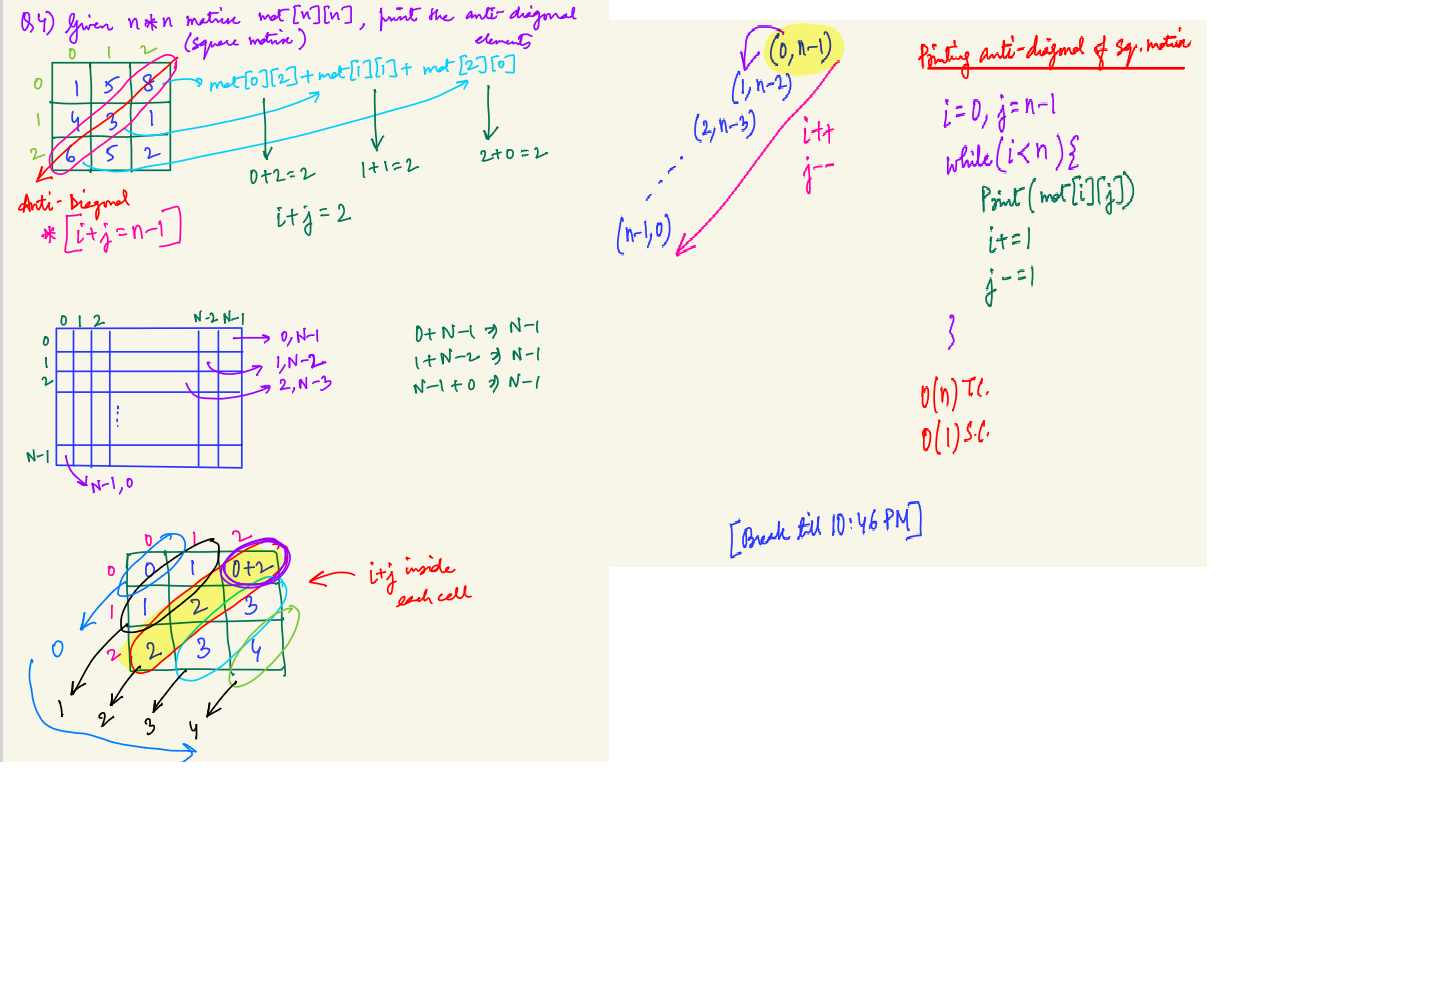 Q.4) Given n*n matrix mat[n][n], print the anti-diagonal
(square matrix) elements
0 1 2
0 1 5 8
1 4 3 1
2 6 5 2
mat[0][2] + mat[1][1] + mat[2][0]
0+2=2 1+1=2 2+0=2
Anti-Diagonal
i+j=2
* [i+j=n-1]
0 1 2 N-2 N-1
0
1
2
N-1
0, N-1
1, N-2
2, N-3
N-1, 0
0+N-1 ⇒ N-1
1+N-2 ⇒ N-1
N-1+0 ⇒ N-1
0 1 2
0 0 1 0+2
1 1 2 3
2 2 3 4
i+j inside
each cell
0
1 2 3 4
(0, n-1)
(1, n-2)
(2, n-3)
(n-1, 0)
i++
j--
Printing anti-diagonal of sq. matrix
i=0, j=n-1
while(i<n){
Print(mat[i][j])
i+=1
j-=1
}
O(n) T.C.
O(1) S.C.
[Break till 10:46 PM]